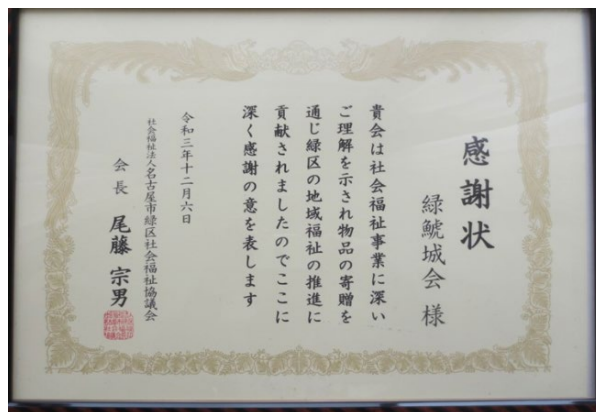 感謝状
緑鯱城会 様
貴会は社会福祉事業に深い
ご理解を示され物品の寄贈を
通じ緑区の地域福祉の推進に
貢献されましたのでここに
深く感謝の意を表します
令和三年十二月六日
社会福祉法人名古屋市緑区社会福祉協議会
会長 尾藤 宗男